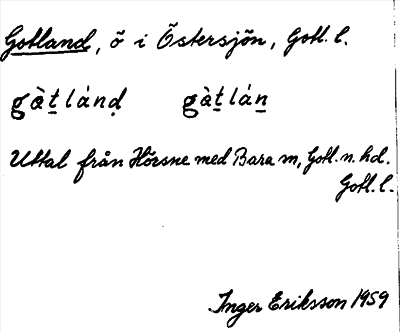 Gotland, ö i Östersjön, Gotl. l.
gàt̲lánḍ gàt̲lán̲
Uttal från Hörsne med Bara sn, Gotl. n. hd.
Gotl. l.
Inger Eriksson 1959